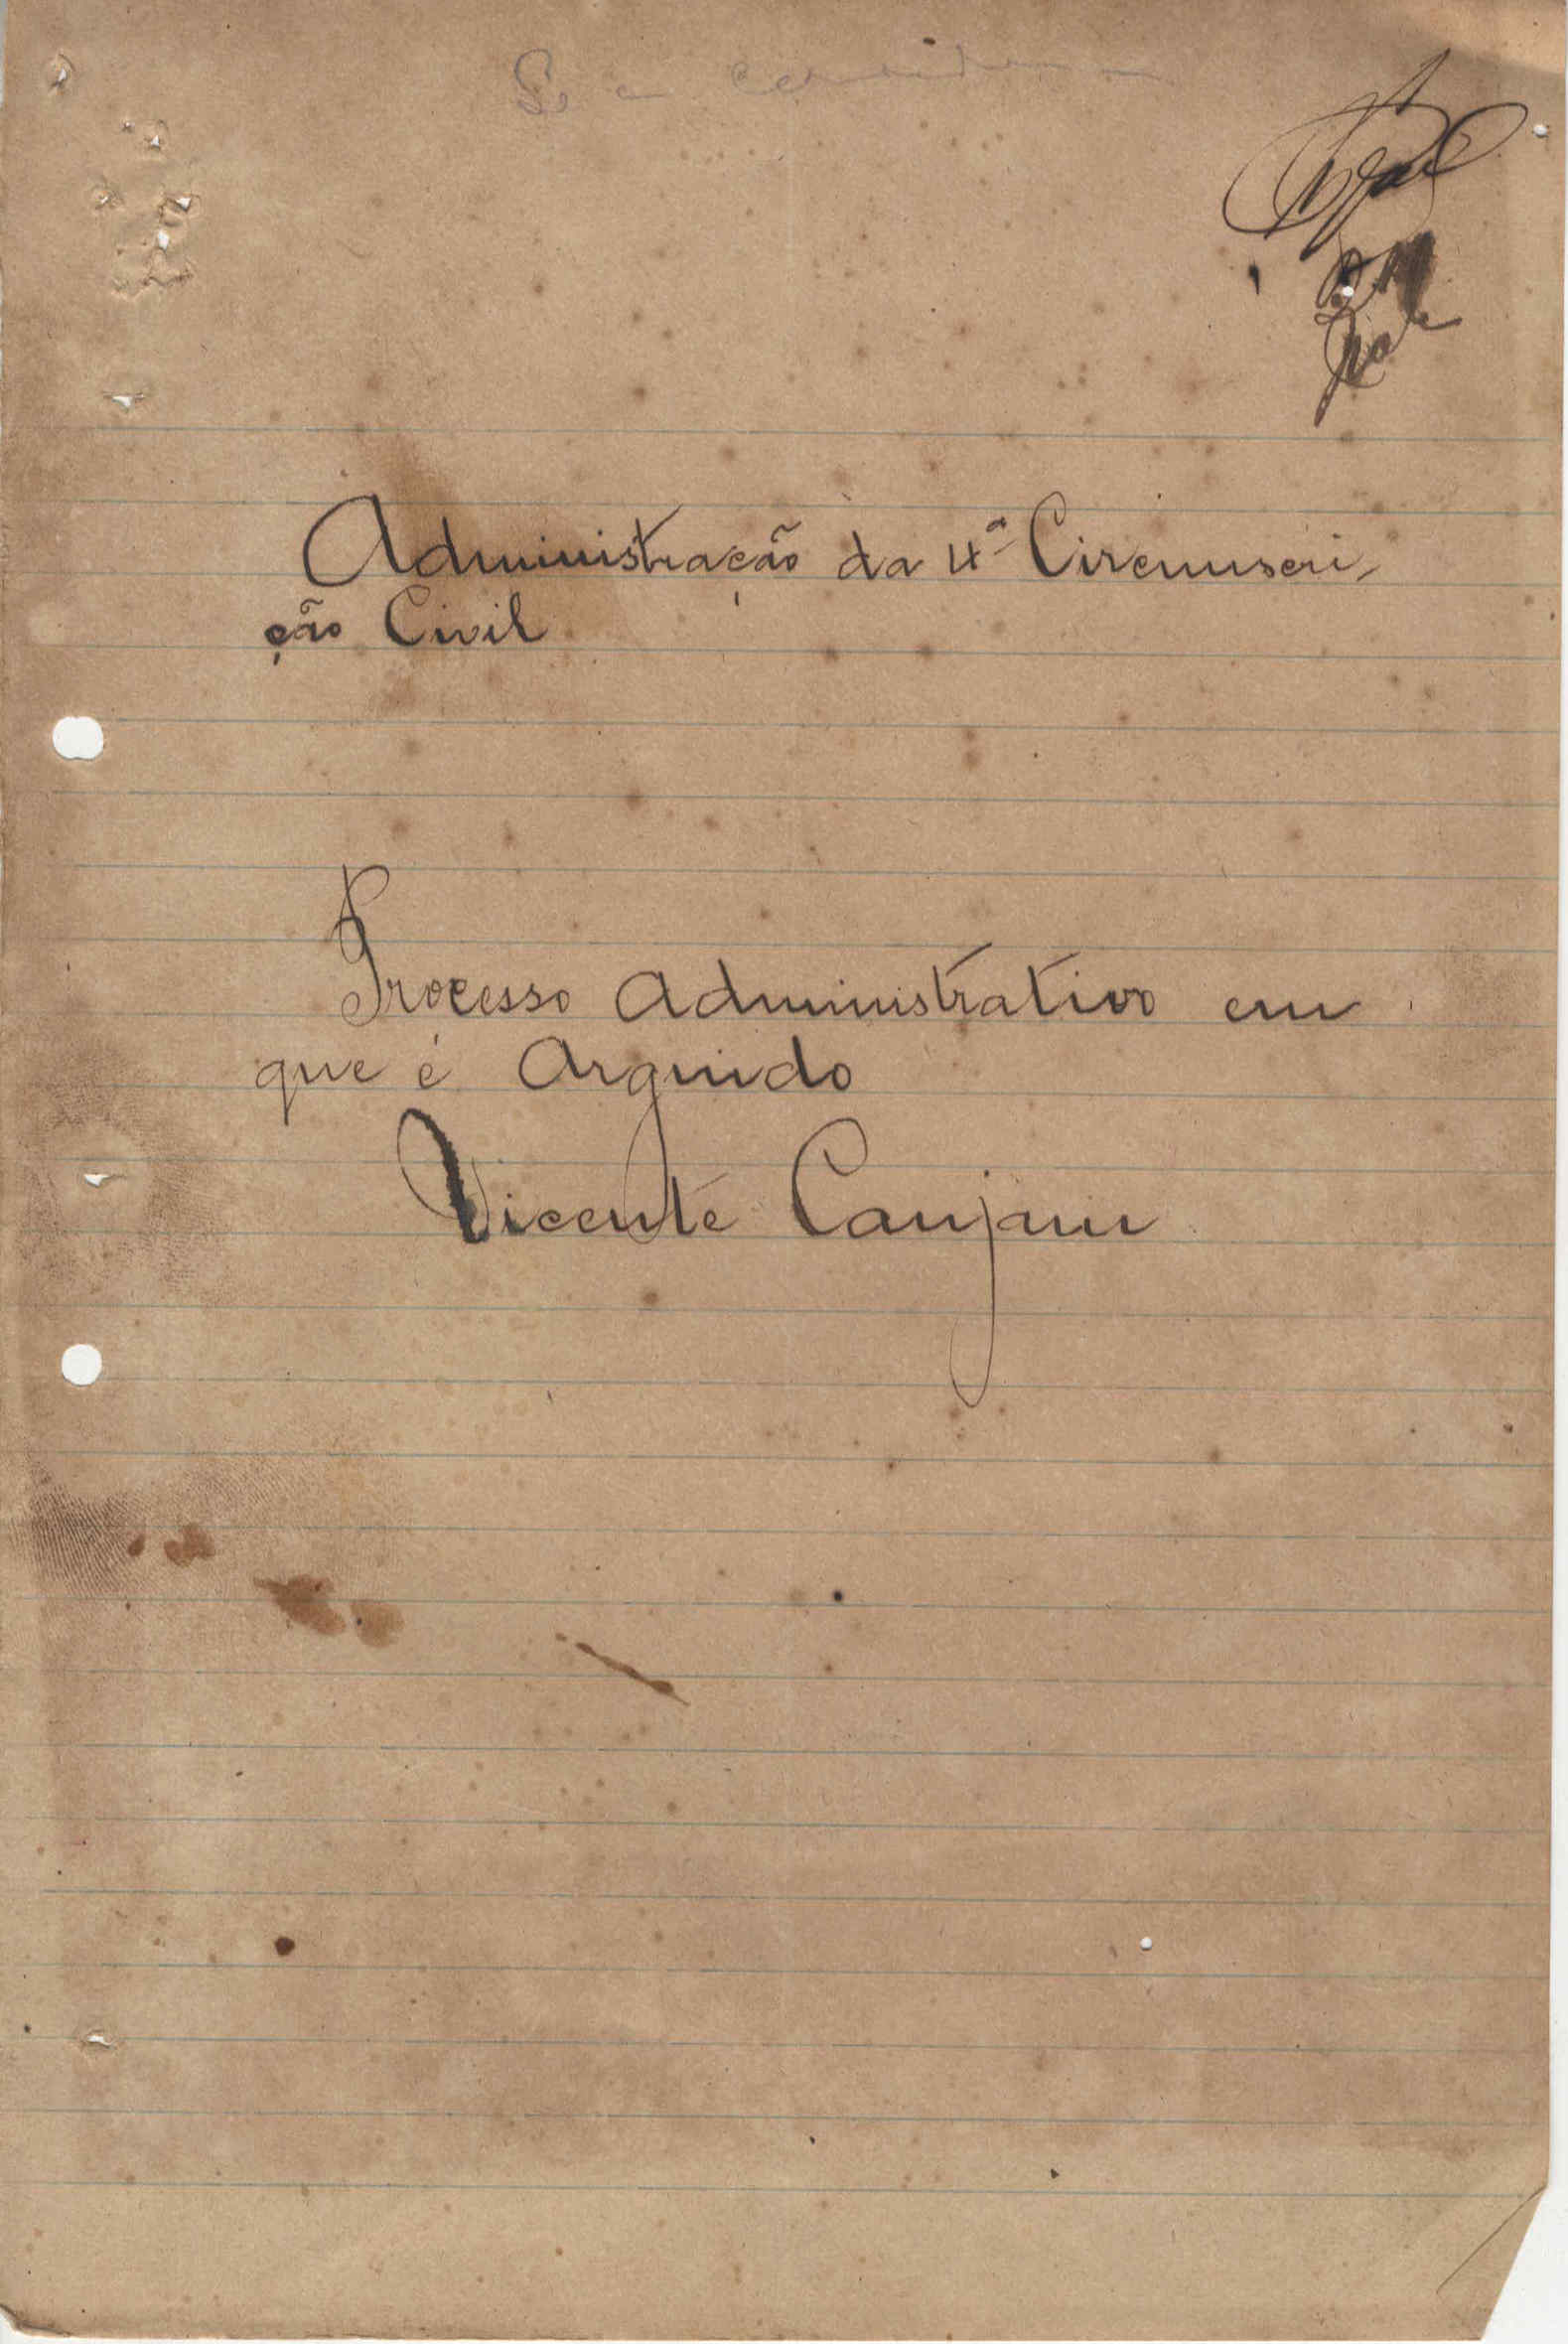 Administração da 4ª Circunscri-
ção Civil
Processo Administrativo em
que é Arguido
Vicente Canjam